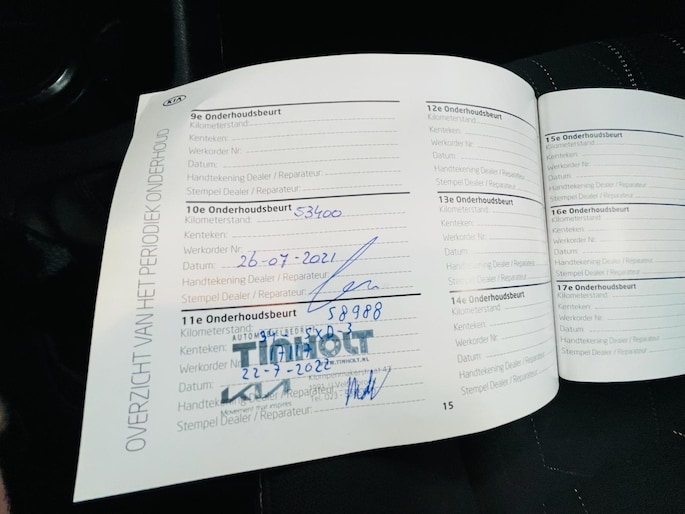 KIA
OVERZICHT VAN HET PERIODIEK ONDERHOUD
9e Onderhoudsbeurt
Kilometerstand:
Kenteken:
Werkorder Nr:
Datum:
Handtekening Dealer / Reparateur:
Stempel Dealer / Reparateur:
10e Onderhoudsbeurt
Kilometerstand: 53400
Kenteken:
Werkorder Nr:
Datum: 26-07-2021
Handtekening Dealer / Reparateur:
Stempel Dealer / Reparateur:
11e Onderhoudsbeurt
Kilometerstand: 58988
Kenteken:
TINHOLT
Werkorder Nr:
Datum: 22-7-2022
KIA
Handtekening Dealer / Reparateur:
Movement that inspires
Stempel Dealer / Reparateur:
12e Onderhoudsbeurt
Kilometerstand:
Kenteken:
Werkorder Nr:
Datum:
Handtekening Dealer / Reparateur:
Stempel Dealer / Reparateur:
13e Onderhoudsbeurt
Kilometerstand:
Kenteken:
Werkorder Nr:
Datum:
Handtekening Dealer / Reparateur:
Stempel Dealer / Reparateur:
14e Onderhoudsbeurt
Kilometerstand:
Kenteken:
Werkorder Nr:
Datum:
Handtekening Dealer / Reparateur:
Stempel Dealer / Reparateur:
15
15e Onderhoudsbeurt
Kilometerstand:
Kenteken:
Werkorder Nr:
Datum:
Handtekening Dealer / Reparateur:
Stempel Dealer / Reparateur:
16e Onderhoudsbeurt
Kilometerstand:
Kenteken:
Werkorder Nr:
Datum:
Handtekening Dealer / Reparateur:
Stempel Dealer / Reparateur:
17e Onderhoudsbeurt
Kilometerstand:
Kenteken:
Werkorder Nr:
Datum:
Handtekening Dealer / Reparateur:
Stempel Dealer / Reparateur: